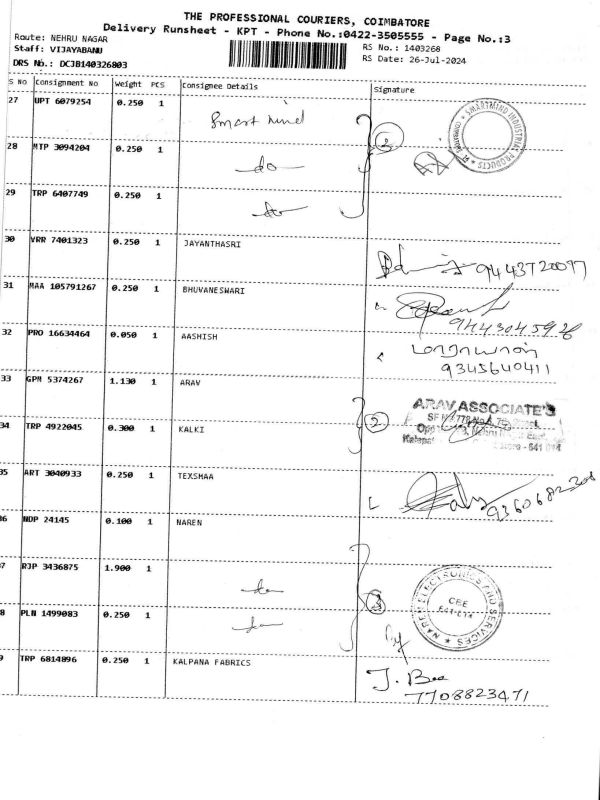 THE PROFESSIONAL COURIERS, COIMBATORE
Delivery Runsheet - KPT - Phone No.:0422-3505555 - Page No.:3
Route: NEHRU NAGAR
Staff: VIJAYABANU
RS No.: 1403268
DRS No.: DCJB140326803
RS Date: 26-Jul-2024
S No Consignment No Weight PCS Consignee Details Signature
27 UPT 6079254 0.250 1 Smart mind
SMARTMIND INDUSTRIAL PRODUCTS
28 MTP 3094204 0.250 1 -do-
3
29 TRP 6407749 0.250 1 -do-
30 VRR 7401323 0.250 1 JAYANTHASRI
9443720077
31 MAA 105791267 0.250 1 BHUVANESWARI
9443045926
32 PRO 16634464 0.050 1 AASHISH
9345640411
33 GPM 5374267 1.130 1 ARAV
ARAV ASSOCIATE'S
2
34 TRP 4922045 0.300 1 KALKI
641 014
35 ART 3040933 0.250 1 TEXSHAA
36 NDP 24145 0.100 1 NAREN
37 RJP 3436875 1.900 1 -do-
NAREN ELECTRONICS AND SERVICES
CBE
3
38 PLN 1499083 0.250 1 -do-
39 TRP 6814896 0.250 1 KALPANA FABRICS
7708823471